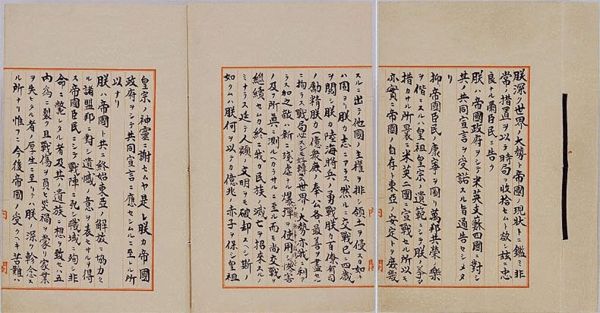 朕深ク世界ノ大勢ト帝國ノ現状トニ鑑ミ非
常ノ措置ヲ以テ時局ヲ收拾セムト欲シ茲ニ忠
良ナル爾臣民ニ告ク
朕ハ帝國政府ヲシテ米英支蘇四國ニ對シ
其ノ共同宣言ヲ受諾スル旨通告セシメタリ
抑々帝國臣民ノ康寧ヲ圖リ萬邦共榮ノ樂
ヲ偕ニスルハ皇祖皇宗ノ遺範ニシテ朕ノ拳々
措カサル所曩ニ米英二國ニ宣戰セル所以モ
亦實ニ帝國ノ自存ト東亞ノ安定トヲ庶幾
スルニ出テ他國ノ主權ヲ排シ領土ヲ侵スカ如
キハ固ヨリ朕カ志ニアラス然ルニ交戰已ニ四歳
ヲ閲シ朕カ陸海將兵ノ勇戰朕カ百僚有司
ノ勵精朕カ一億衆庶ノ奉公各々最善ヲ盡セル
ニ拘ラス戰局必スシモ好轉セス世界ノ大勢亦我ニ利ア
ラス加之敵ハ新ニ殘虐ナル爆彈ヲ使用シテ頻ニ無辜ヲ殺傷シ慘害
ノ及フ所眞ニ測ルヘカラサルニ至ル而モ尚交戰ヲ
繼續セムカ終ニ我カ民族ノ滅亡ヲ招來スルノ
ミナラス延テ人類ノ文明ヲモ破却スヘシ斯ノ
如クムハ朕何ヲ以テカ億兆ノ赤子ヲ保シ皇祖
皇宗ノ神靈ニ謝セムヤ是レ朕カ帝國
政府ヲシテ共同宣言ニ應セシムルニ至レル所
以ナリ
朕ハ帝國ト共ニ終始東亞ノ解放ニ協力セ
ル諸盟邦ニ對シ遺憾ノ意ヲ表セサルヲ得
ス帝國臣民ニシテ戰陣ニ死シ職域ニ殉シ非
命ニ斃レタル者及其ノ遺族ニ想ヲ致セハ五
内爲ニ裂ク且戰傷ヲ負ヒ災禍ヲ蒙リ家業
ヲ失ヒタル者ノ厚生ニ至リテハ朕ノ深ク軫念ス
ル所ナリ惟フニ今後帝國ノ受クヘキ苦難ハ